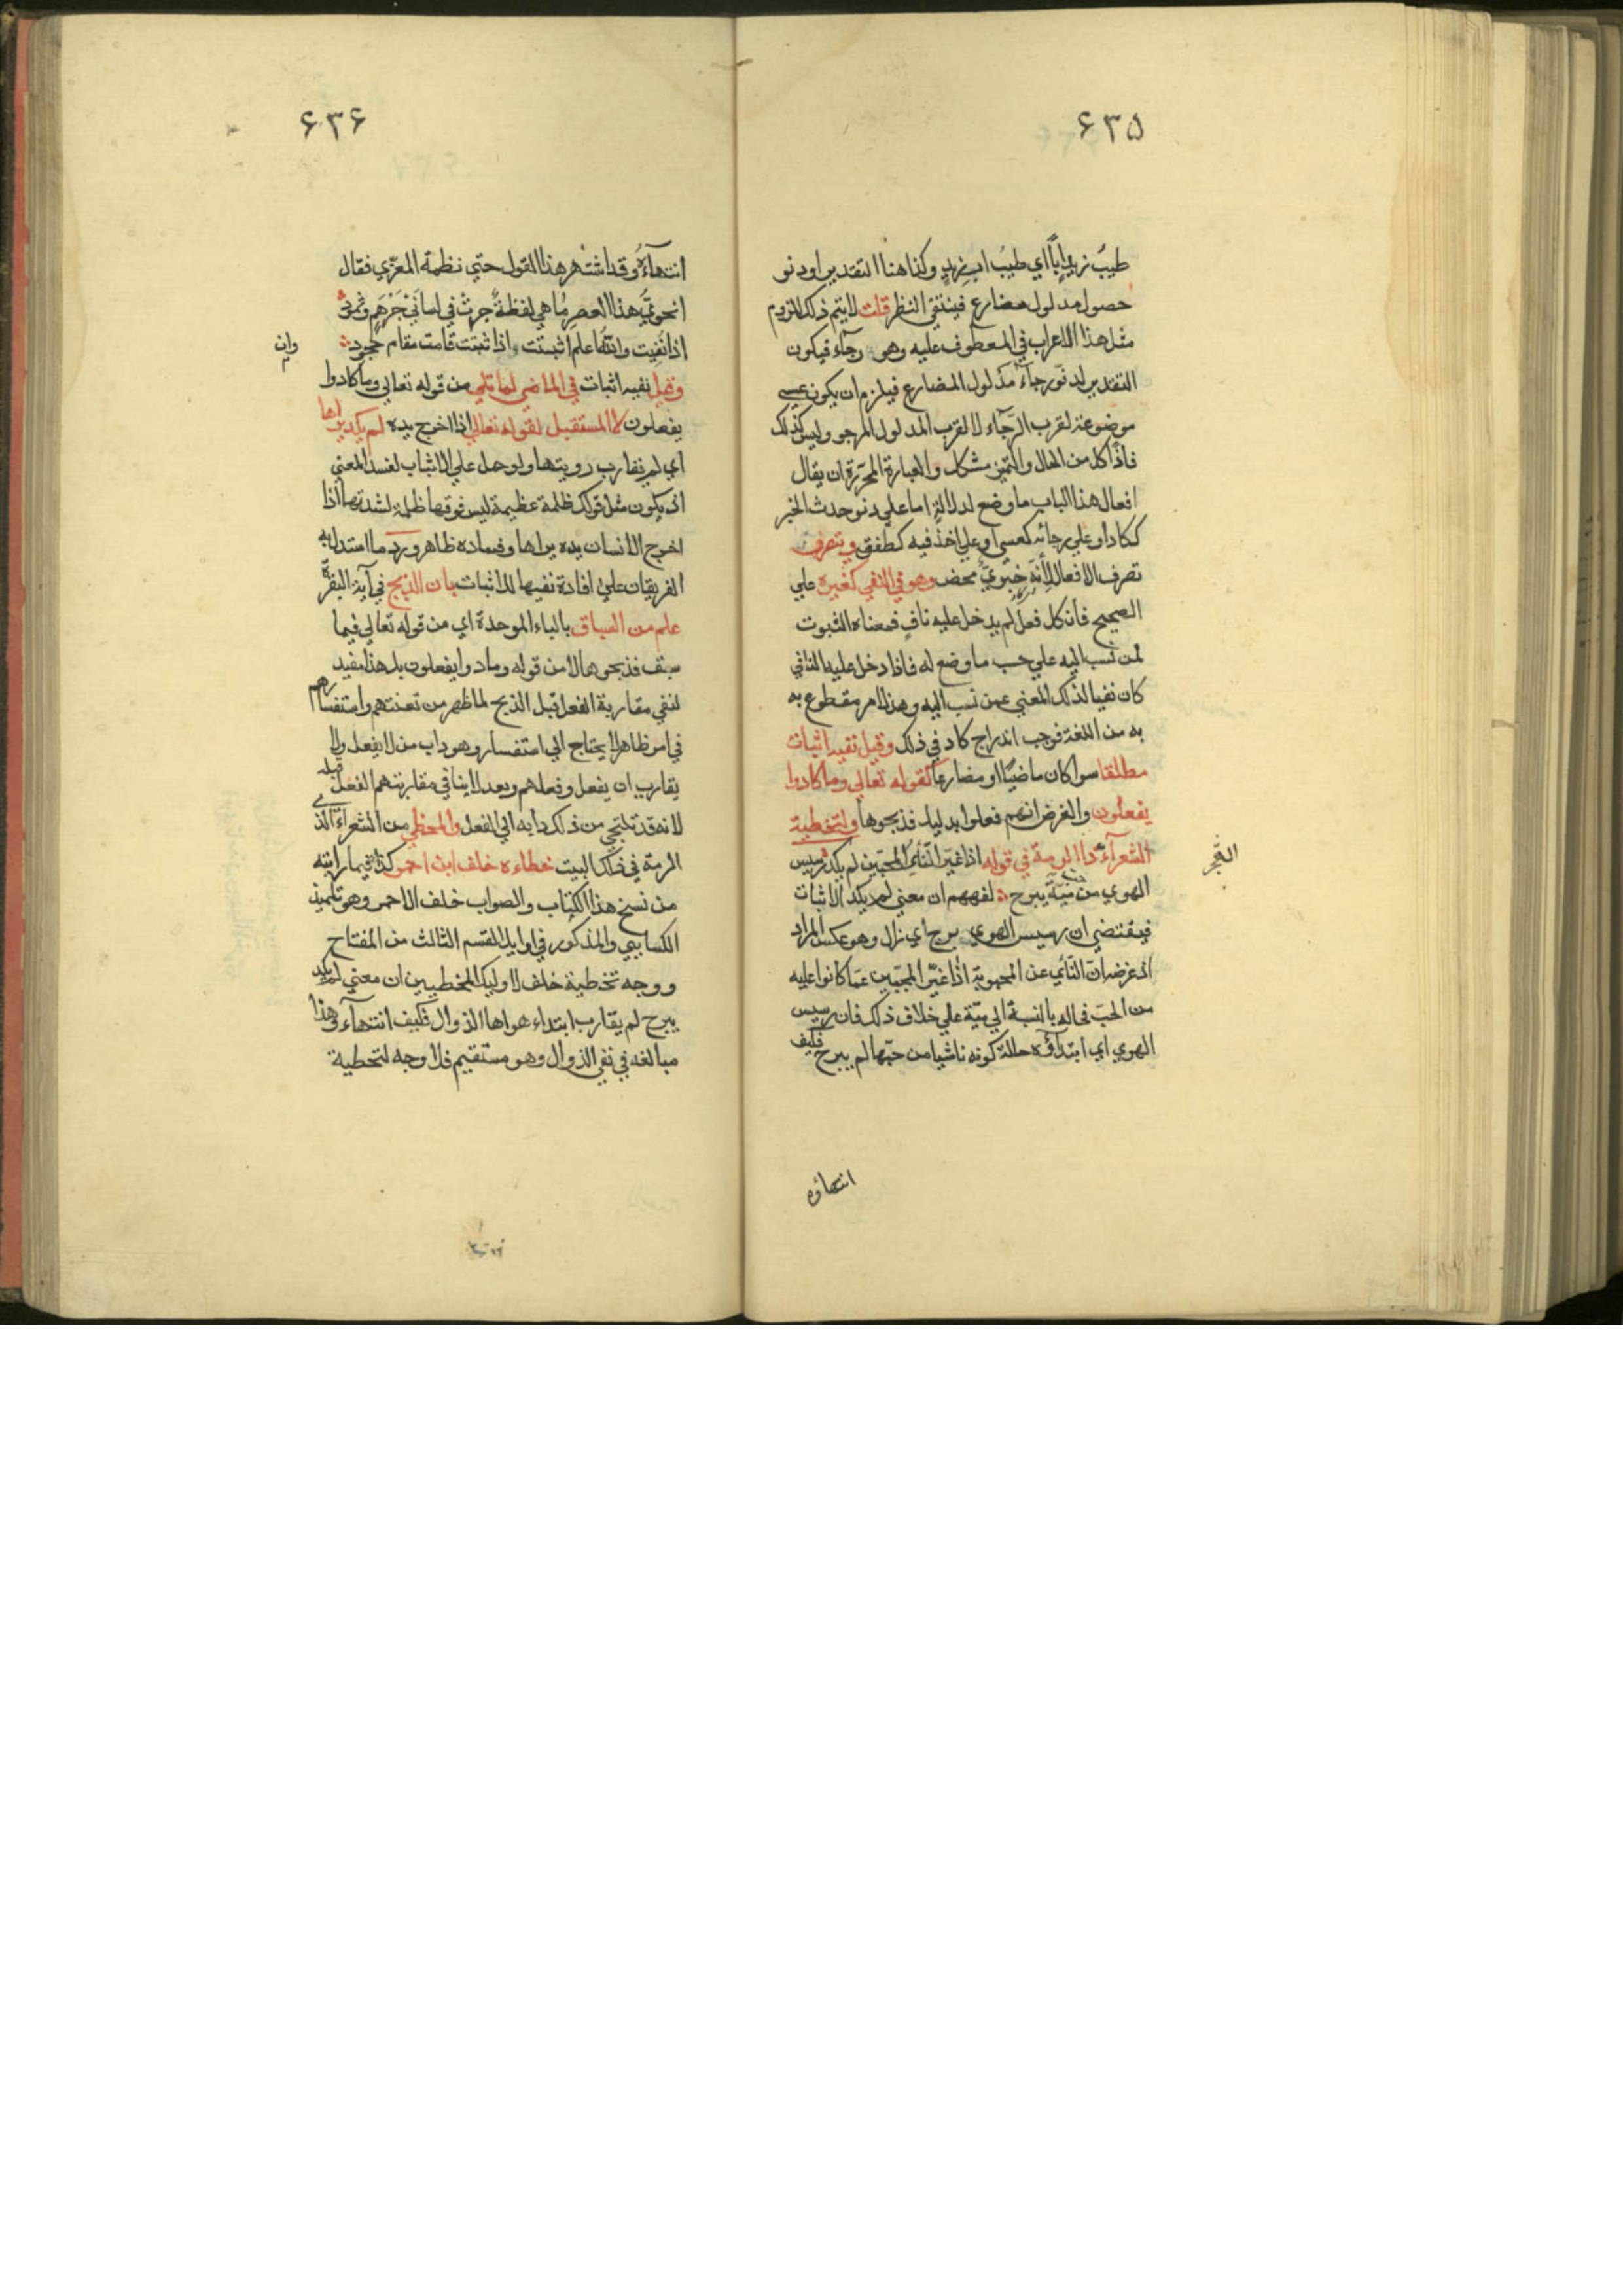 ۶۳۵
طيب زيد ابًا اي طيب اب زيد وكذا هنا التقدير او دنو
حصول مدلول مضارع فينتفي النظر قلت لا يتم ذلك للزوم
مثل هذا الاعراب في المعطوف عليه وهو رجآء فيكون
التقدير لدنو رجآء مدلول المضارع فيلزم ان يكون عسي
موضوعة لقرب الرّجآء لا لقرب المدلول المرجو وليس كذلك
فاذًا كل من الحال والتمييز مشكل والعبارة المحرّرة ان يقال
افعال هذا الباب ما وضع لدلالةٍ اما علي دنو حدث الخبر
ككاد او علي رجائه كعسي او علي اخذ فيه كطفق ويتصرف
تصرف الافعال لأنّه خبريّ محض وهو في النفي كغيره علي
الصحيح فان كل فعل لم يدخل عليه نافٍ فمعناه الثبوت
لمن نسب اليه علي حسب ما وضع له فاذا دخل عليه النافي
كان نفيا لذلك المعني عمن نسب اليه وهذا امر مقطوع به
به من اللغة فوجب اندراج كاد في ذلك وقيل نفيه اثبات
مطلقا سوا كان ماضيًا او مضارعا كقوله تعالي وما كادوا
يفعلون والغرض انهم فعلوا بدليل فذبحوها ولتخطية
الشعرآء ذا الرمة في قوله اذا غيّر النّأي المحبّين لم يكد رسيس
الهوي من ميّة يبرح لفهمهم ان معني لم يكد الاثبات
فيقتضي ان رسيس الهوي برح اي زال وهو عكس المراد
اذ غرضه ان النّأي عن المحبوبة اذا غيّر المحبّين عمّا كانوا عليه
من الحبّ فحاله بالنسبة الي ميّة علي خلاف ذلك فان رسيس
الهوي اي ابتدآؤه حالة كونه ناشيا من حبّها لم يبرح فكيف
انتهاؤه
۶۳۶
انتهآءه وقد اشتهر هذا القول حتي نظمه المعرّي فقال
انحويّ هذا العصر ما هي لفظة جرت في لساني جرهم وثمود
اذا نفيت والله اعلم اثبتت واذا ثبتت قامت مقام جحود
وان
وقيل نفيه اثبات في الماضي لما تلي من قوله تعالي وما كادوا
يفعلون لا المستقبل لقوله تعالي اذا اخرج يده لم يكد يراها
اي لم يقارب رويتها ولو حمل علي الاثبات لفسد المعني
اذ يكون مثل قولك ظلمة عظيمة ليس فوقها ظلمة لشدتها اذا
اخرج الانسان يده يراها وفساده ظاهر ورد ما استدل به
الفريقان علي افادة نفيها للاثبات بان الذبح في آية البقرة
علم من السياق بالباء الموحدة اي من قوله تعالي فيما
سبق فذبحوها لا من قوله وما دوا يفعلون بل هذا مفيد
لنفي مقاربة الفعل قبل الذبح لما ظهر من تعنتهم واستفسارهم
في امر ظاهر لا يحتاج الي استفسار وهو داب من لا يفعل ولا
يقارب ان يفعل وفعلهم وبعد لا ينافي مقاربتهم الفعل قبله
لانه قد تلتجي من ذلك دابه الي الفعل والمخطي من الشعرآء الذ
الرمة في ذلك البيت خطاءه خلف ابن احمر كذا فيما رايته
من نسخ هذا الكتاب والصواب خلف الاحمر وهو تلميذ
الكسايي والمذكور في اوايل القسم الثالث من المفتاح
ووجه تخطية خلف لاوليك المخطيين ان معني لم يكد
يبرح لم يقارب ابتداء هواها الذوال فكيف انتهآءه وهذا
مبالغه في نفي الذوال وهو مستقيم فلا وجه لتخطية